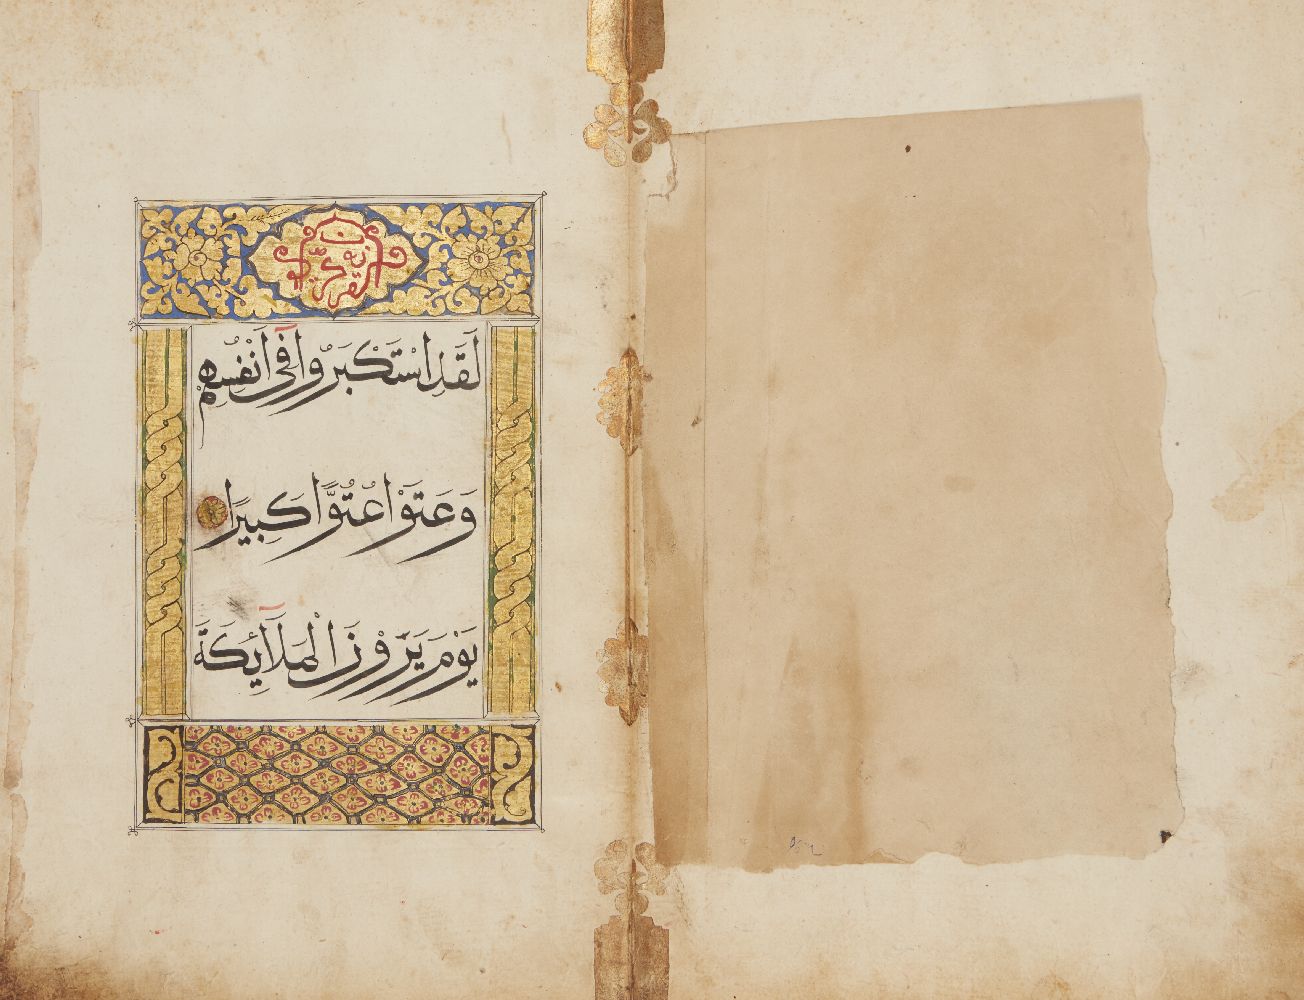 لَقَدِ اسْتَكْبَرُوا فِىٓ اَنْفُسِهِمْ
وَعَتَوْا عُتُوًّا كَبِيرًا
يَوْمَ يَرَوْنَ الْمَلَآئِكَةَ